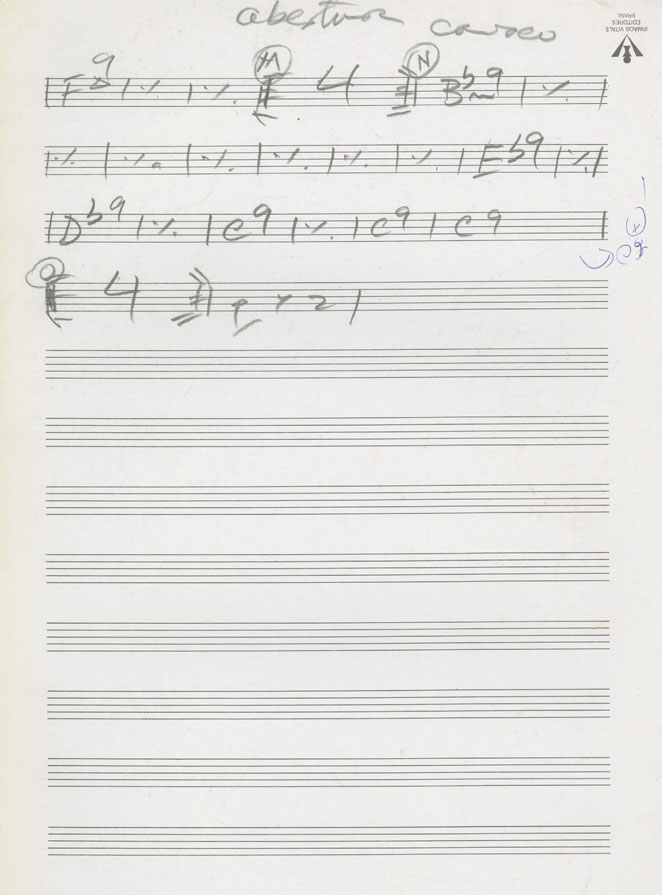 abertura
IRMÃOS VITALE
EDITORES
BRASIL
F9 | ٪ | ٪ M 4 N Bb9 | ٪
٪ | ٪ | ٪ | ٪ | ٪ | ٪ | Eb9 | ٪
Db9 | ٪ | C9 | ٪ | C9 | C9
O 4 x 2